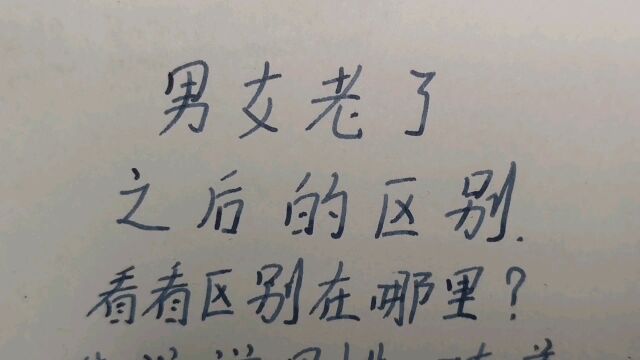 男女老了
之后的区别.
看看区别在哪里?